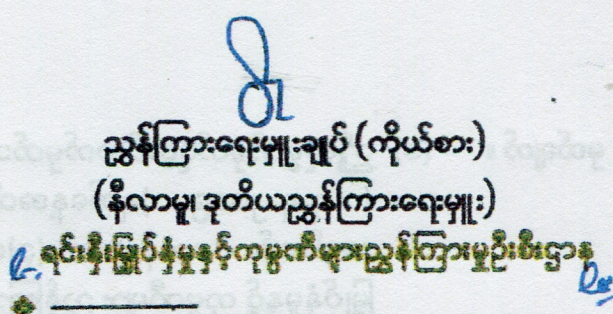 ညွှန်ကြားရေးမှူးချုပ် (ကိုယ်စား)
(နီလာမူ၊ ဒုတိယညွှန်ကြားရေးမှူး)
ရင်းနှီးမြှုပ်နှံမှုနှင့်ကုမ္ပဏီများညွှန်ကြားမှုဦးစီးဌာန